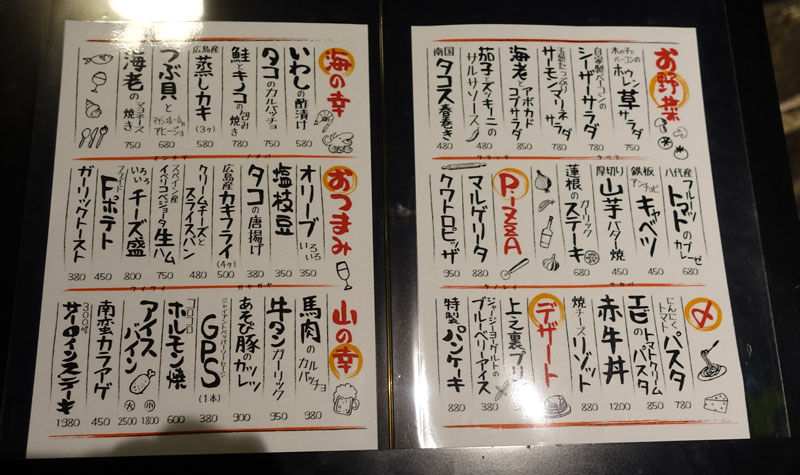 海の幸
いわしの酢漬け 580
タコのカルパッチョ 780
鮭とキノコの包み焼き 780
広島産 蒸しカキ (3ヶ) 580
つぶ貝とマッシュルームのアヒージョ 680
海老のマヨネーズ焼き 750
おつまみ
オリーブいろいろ 350
塩枝豆 350
タコの唐揚げ 380
広島産 カキフライ (4ヶ) 500
クリームチーズとスライスパン 480
スペイン産 イベリコベジョータ生ハム 750
いろいろチーズ盛 800
フライド Fポテト 450
ガーリックトースト 380
山の幸
馬肉のカルパッチョ 980
牛タンガーリック 950
あそび豚のカツレツ 900
GPS (1本) 380
コロコロ ホルモン焼 600
アイスバイン 小 1800 大 2500
南蛮カラアゲ 450
300g サーロインステーキ 1980
お野菜
木の子とベーコンのホウレン草サラダ 780
自家製ベーコンのシーザーサラダ 780
玉葱たっぷりサーモンマリネサラダ 780
海老とアボカドコブサラダ
茄子とズッキーニのサルサソース 480
南国 タコス春巻き 480
八代産 フルーツトマトのカプレーゼ 680
鉄板アンチョビキャベツ 450
厚切り 山芋バター焼 450
蓮根のガーリックステーキ 680
PiZZA
マルゲリータ 880
クワトロピッザ 950
〆
にんにくトマトパスタ 780
エビのトマトクリームパスタ 850
赤牛丼 1200
焼チーズリゾット 880
デザート
上之裏プリン
ジャージーヨーグルトのブルーベリーアイス 380
特製パンケーキ 880